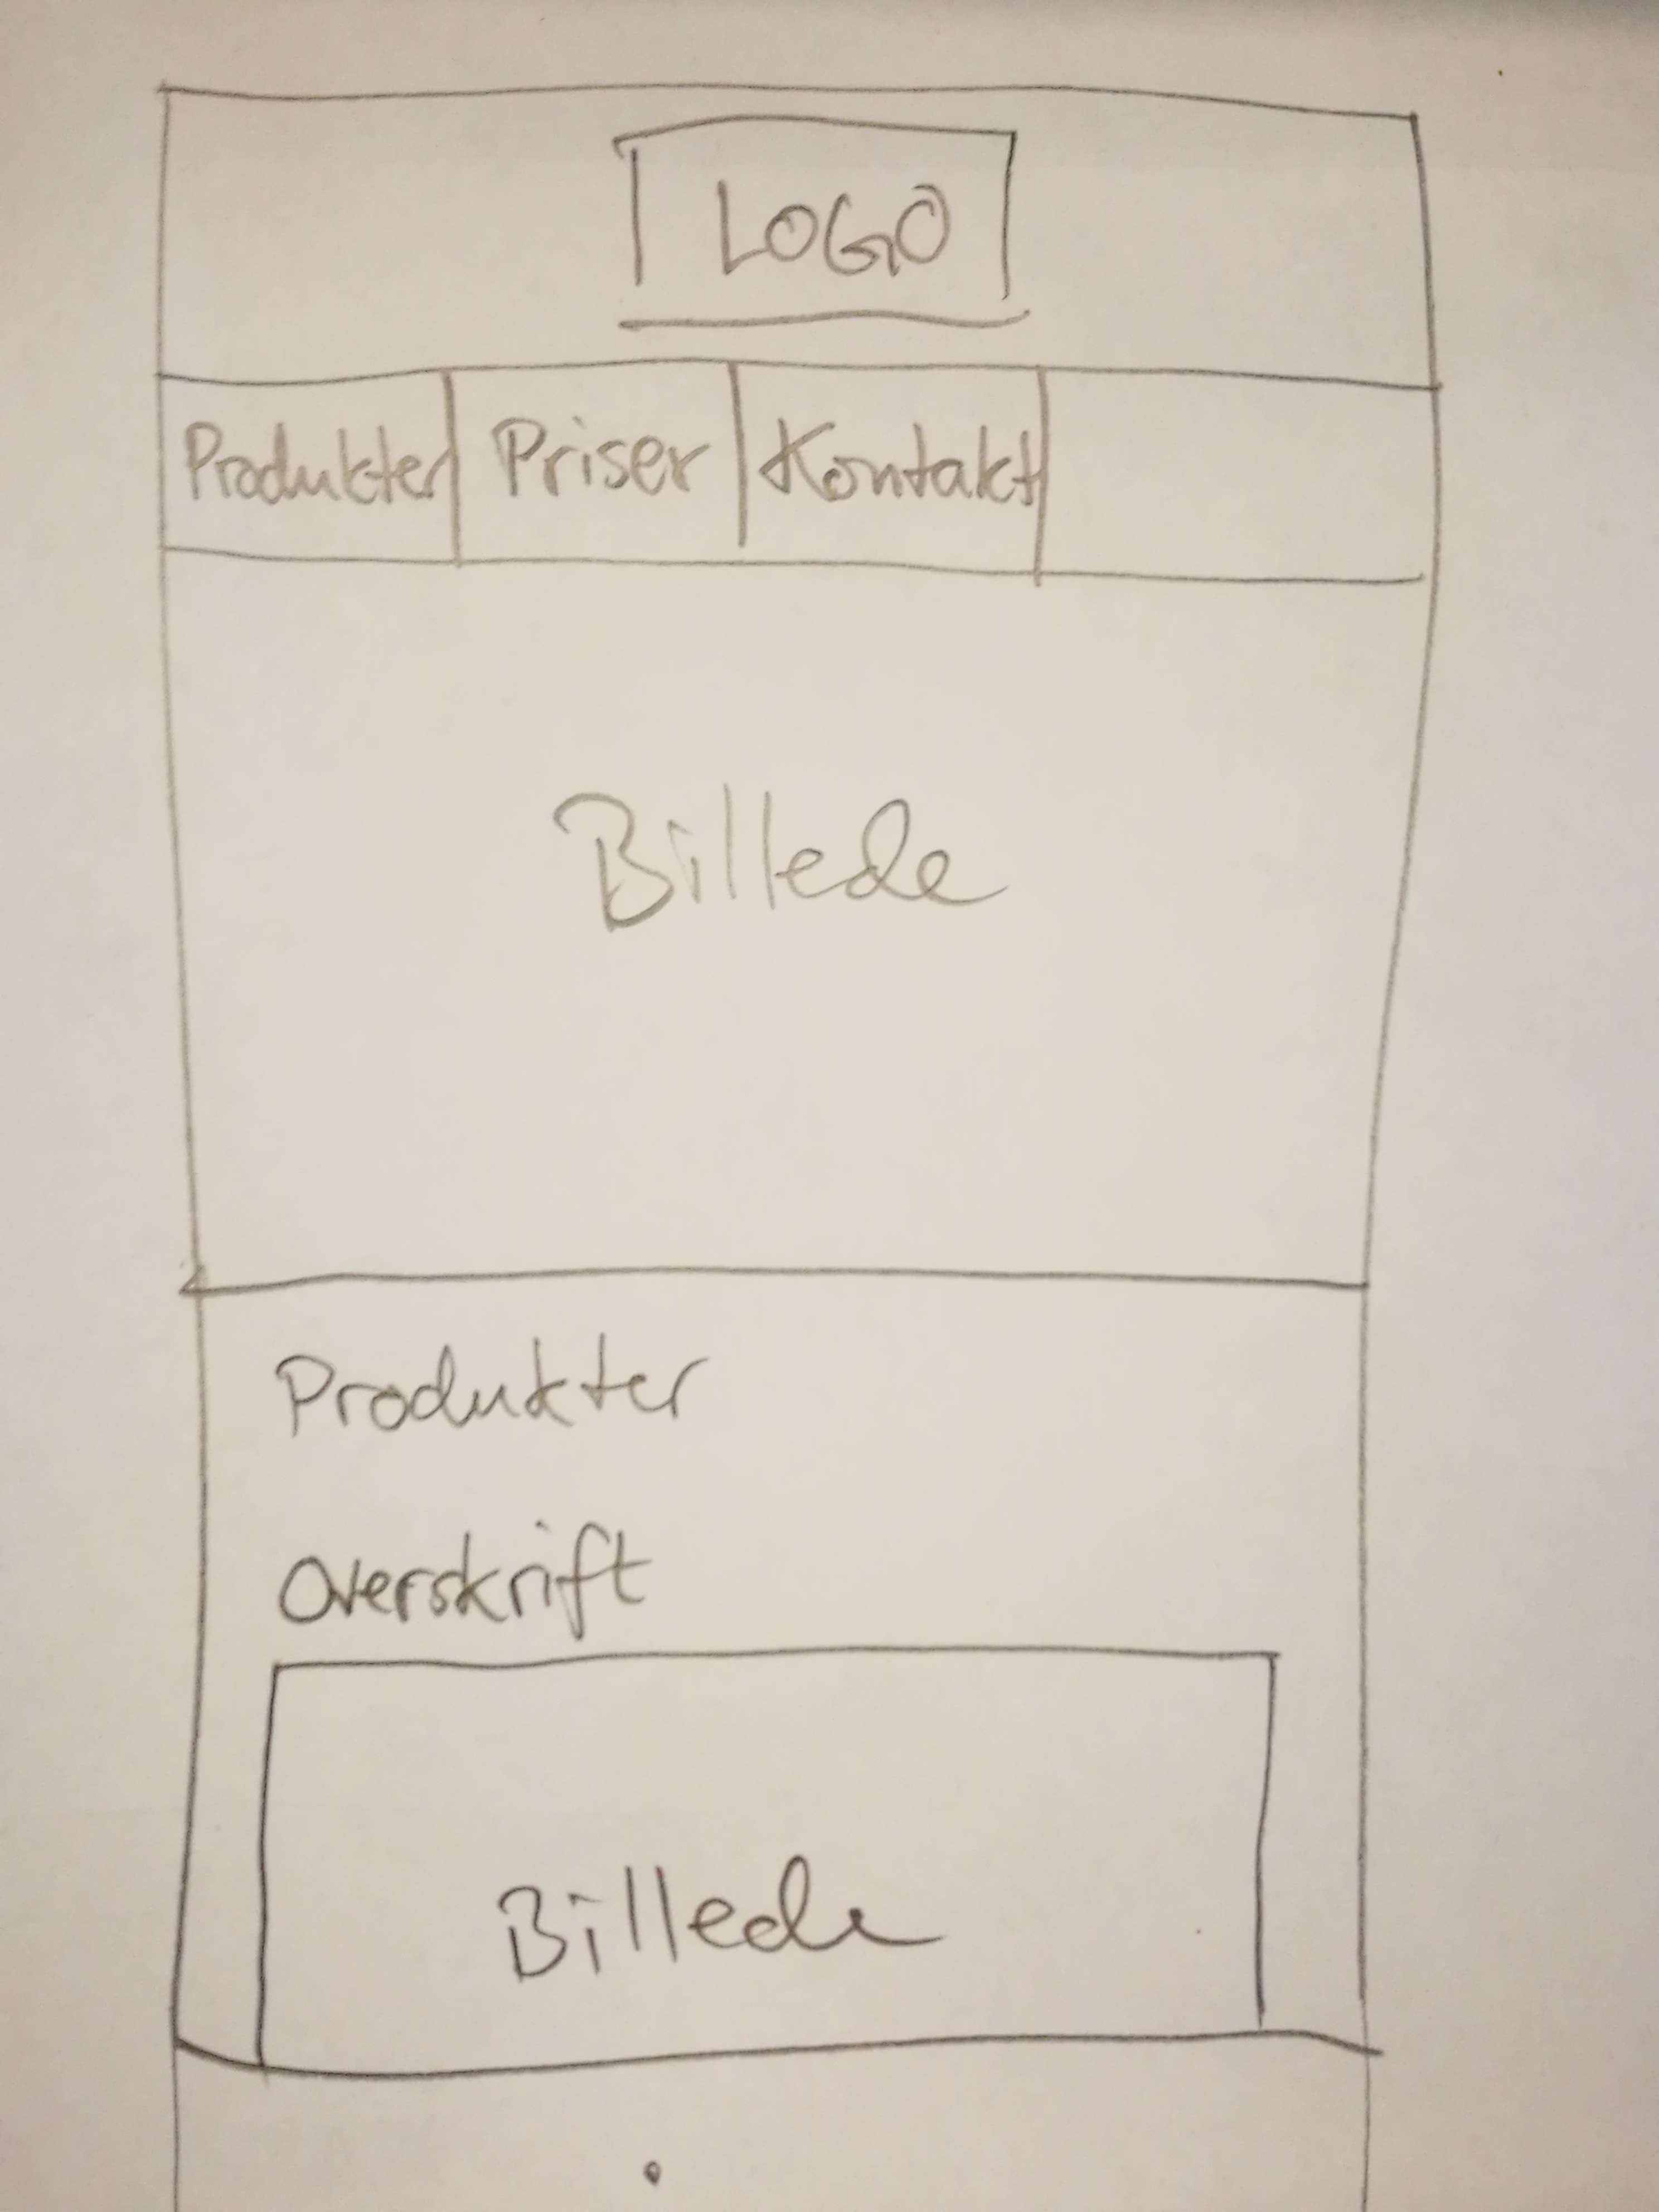 LOGO
Produkter Priser Kontakt
Billede
Produkter
Overskrift
Billede